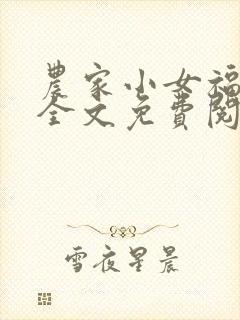 農家小女福
全文免費閱
雪夜星晨